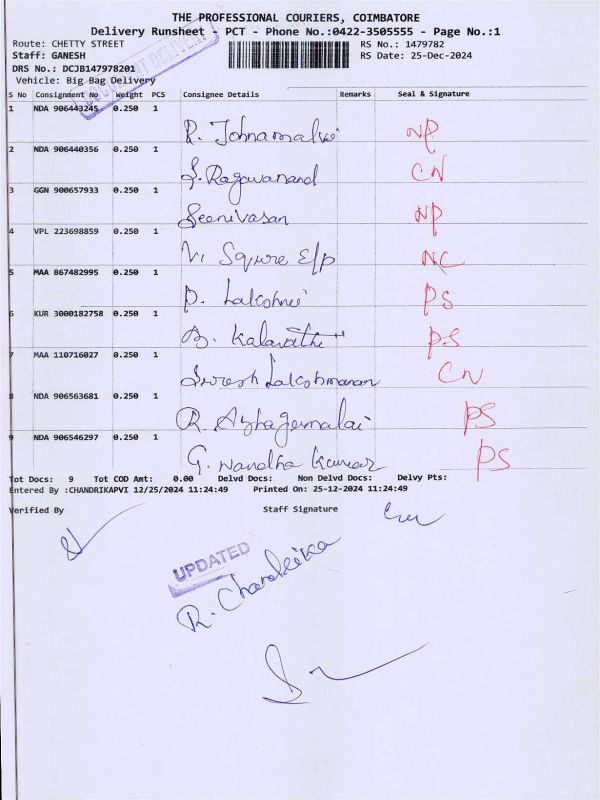 THE PROFESSIONAL COURIERS, COIMBATORE
Delivery Runsheet - PCT - Phone No.:0422-3505555 - Page No.:1
Route: CHETTY STREET RS No.: 1479782
Staff: GANESH RS Date: 25-Dec-2024
DRS No.: DCJB147978201
Vehicle: Big Bag Delivery
S No Consignment No Weight PCS Consignee Details Remarks Seal & Signature
1 NDA 906443245 0.250 1
R. NP
2 NDA 906440356 0.250 1
S. Ragavanand CN
3 GGN 900657933 0.250 1
Seenivasan NP
4 VPL 223698859 0.250 1
V. Squre E/p NC
5 MAA 867482995 0.250 1
P. Lakshmi PS
6 KUR 3000182758 0.250 1
Kalavathi PS
7 MAA 110716027 0.250 1
Suresh Lakshmanan CN
8 NDA 906563681 0.250 1
R. Azhagumalai PS
9 NDA 906546297 0.250 1
G. Nandha Kumar PS
Tot Docs: 9 Tot COD Amt: 0.00 Delvd Docs: Non Delvd Docs: Delvy Pts:
Entered By :CHANDRIKAPVI 12/25/2024 11:24:49 Printed On: 25-12-2024 11:24:49
Verified By Staff Signature
UPDATED
R. Chandrika